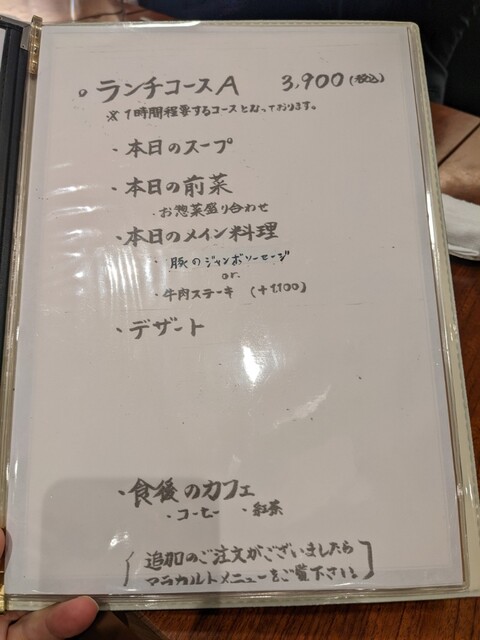 ○ ランチコースA 3,900(税込)
※1時間程要するコースとなっております。
・本日のスープ
・本日の前菜
・お惣菜盛り合わせ
・本日のメイン料理
・豚のジャンボソーセージ
or
・牛肉ステーキ (+1,100)
・デザート
・食後のカフェ
・コーヒー ・紅茶
追加のご注文がございましたら
アラカルトメニューをご覧下さいませ